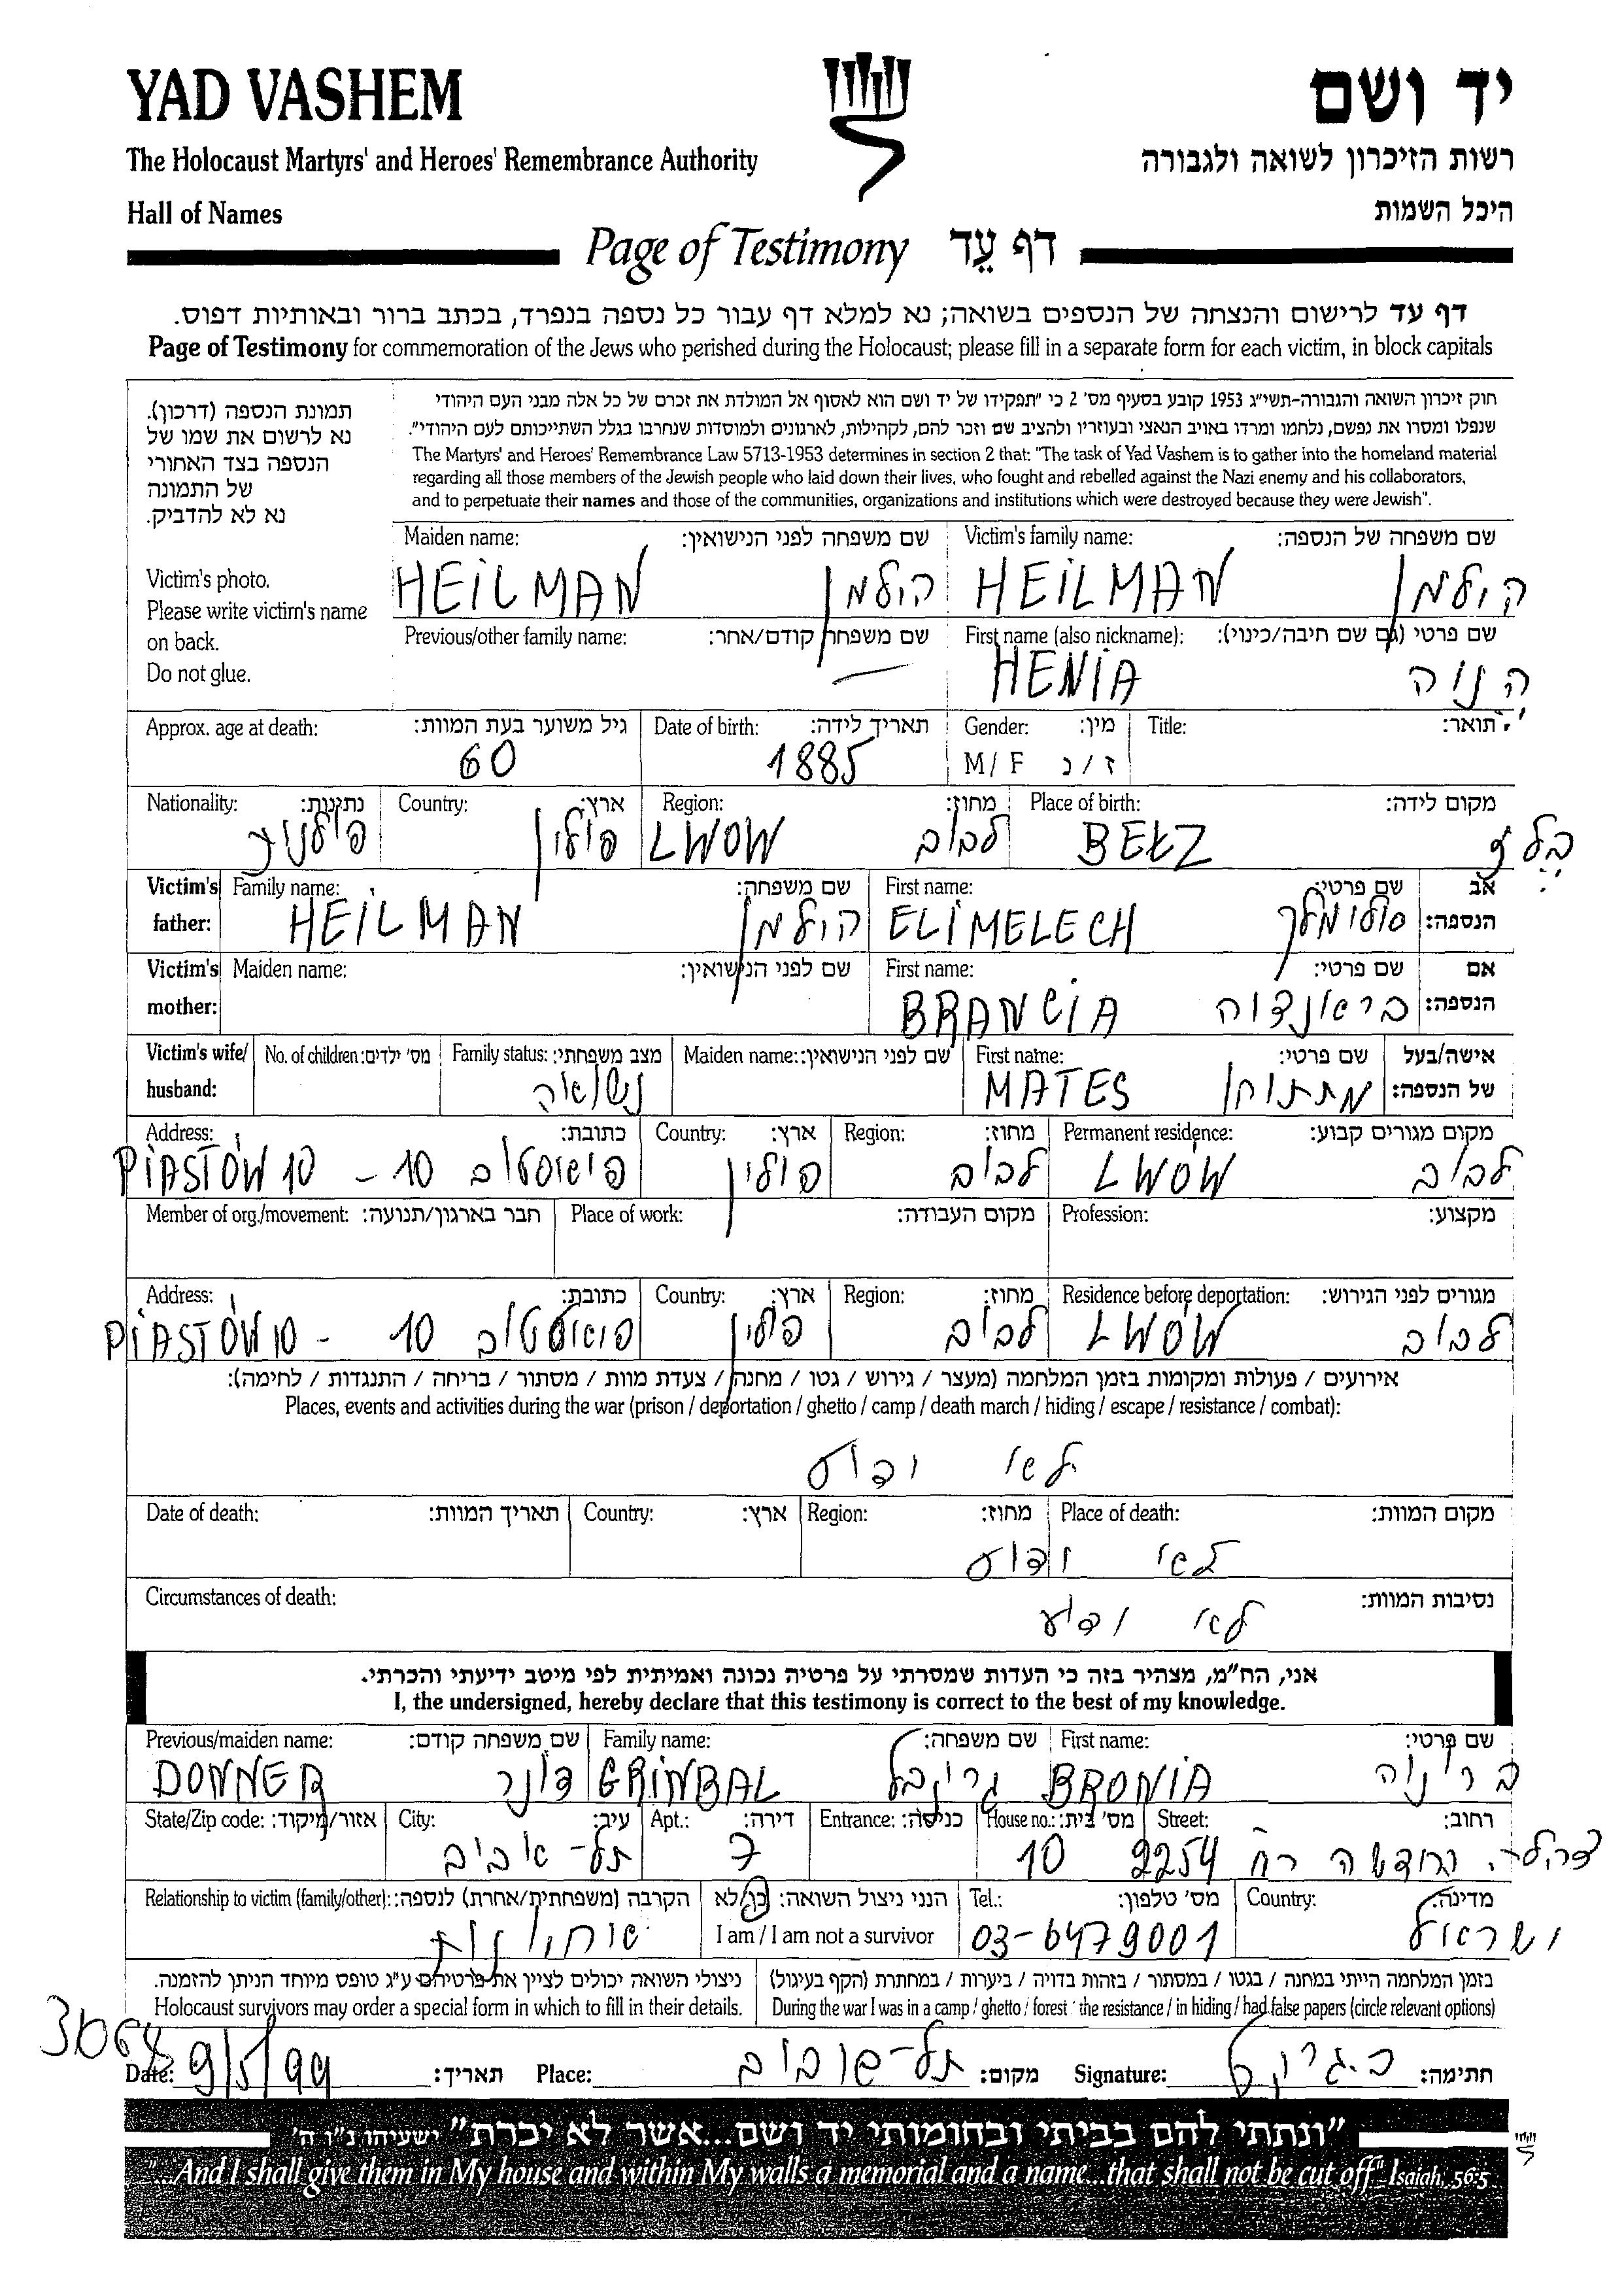 YAD VASHEM
יד ושם
The Holocaust Martyrs' and Heroes' Remembrance Authority
רשות הזיכרון לשואה ולגבורה
Hall of Names
היכל השמות
Page of Testimony דף עֵד
דף עד לרישום והנצחה של הנספים בשואה; נא למלא דף עבור כל נספה בנפרד, בכתב ברור ובאותיות דפוס.
Page of Testimony for commemoration of the Jews who perished during the Holocaust; please fill in a separate form for each victim, in block capitals
תמונת הנספה (דרכון).
נא לרשום את שמו של
הנספה בצד האחורי
של התמונה
נא לא להדביק.
Victim's photo.
Please write victim's name
on back.
Do not glue.
חוק זיכרון השואה והגבורה-תשי"ג 1953 קובע בסעיף מס' 2 כי "תפקידו של יד ושם הוא לאסוף אל המולדת את זכרם של כל אלה מבני העם היהודי
שנפלו ומסרו את נפשם, נלחמו ומרדו באויב הנאצי ובעוזריו ולהציב שם וזכר להם, לקהילות, לארגונים ולמוסדות שנחרבו בגלל השתייכותם לעם היהודי".
The Martyrs' and Heroes' Remembrance Law 5713-1953 determines in section 2 that: "The task of Yad Vashem is to gather into the homeland material
regarding all those members of the Jewish people who laid down their lives, who fought and rebelled against the Nazi enemy and his collaborators,
and to perpetuate their names and those of the communities, organizations and institutions which were destroyed because they were Jewish".
Maiden name: שם משפחה לפני הנישואין: Victim's family name: שם משפחה של הנספה:
HEILMAN הילמן HEILMAN הילמן
Previous/other family name: שם משפחה קודם/אחר: First name (also nickname): שם פרטי (גם שם חיבה/כינוי):
— HENIA הניה
Approx. age at death: גיל משוער בעת המוות: Date of birth: תאריך לידה: Gender: מין: Title: תואר:
60 1885 M / F ז / נ
Nationality: נתינות: Country: ארץ: Region: מחוז: Place of birth: מקום לידה:
פולין LWOW לבוב BEŁZ בלז
Victim's father: Family name: שם משפחה: First name: שם פרטי: אב הנספה:
HEILMAN הילמן ELIMELECH
Victim's mother: Maiden name: שם לפני הנישואין: First name: שם פרטי: אם הנספה:
BRANCIA
Victim's wife/ husband: No. of children: מס' ילדים: Family status: מצב משפחתי: Maiden name: שם לפני הנישואין: First name: שם פרטי: אישה/בעל של הנספה:
נשואה MATES
Address: כתובת: Country: ארץ: Region: מחוז: Permanent residence: מקום מגורים קבוע:
PIASTÓW 10 – 10 פיאסטוב פולין לבוב LWÓW לבוב
Member of org./movement: חבר בארגון/תנועה: Place of work: מקום העבודה: Profession: מקצוע:
Address: כתובת: Country: ארץ: Region: מחוז: Residence before deportation: מגורים לפני הגירוש:
PIASTÓW 10 – 10 פיאסטוב פולין לבוב LWÓW לבוב
אירועים / פעולות ומקומות בזמן המלחמה (מעצר / גירוש / גטו / מחנה / צעדת מוות / מסתור / בריחה / התנגדות / לחימה):
Places, events and activities during the war (prison / deportation / ghetto / camp / death march / hiding / escape / resistance / combat):
לא ידוע
Date of death: תאריך המוות: Country: ארץ: Region: מחוז: Place of death: מקום המוות:
לא ידוע
Circumstances of death: נסיבות המוות:
לא ידוע
אני, הח"מ, מצהיר בזה כי העדות שמסרתי על פרטיה נכונה ואמיתית לפי מיטב ידיעתי והכרתי.
I, the undersigned, hereby declare that this testimony is correct to the best of my knowledge.
Previous/maiden name: שם משפחה קודם: Family name: שם משפחה: First name: שם פרטי:
DONNER דונר GRINBAL גרינבל BRONIA ברוניה
State/Zip code: אזור/מיקוד: City: עיר: Apt.: דירה: Entrance: כניסה: House no.: מס' בית: Street: רחוב:
תל-אביב 7 10 2254
Relationship to victim (family/other): הקרבה (משפחתית/אחרת) לנספה: הנני ניצול השואה: כן/לא Tel.: מס' טלפון: Country: מדינה:
אחינית I am / I am not a survivor 03-6479001 ישראל
ניצולי השואה יכולים לציין את פרטיהם ע"ג טופס מיוחד הניתן להזמנה. בזמן המלחמה הייתי במחנה / בגטו / במסתור / בזהות בדויה / ביערות / במחתרת (הקף בעיגול)
Holocaust survivors may order a special form in which to fill in their details. During the war I was in a camp / ghetto / forest / the resistance / in hiding / had false papers (circle relevant options)
Date: 9/5/99 תאריך: Place: תל-אביב מקום: Signature: חתימה:
"ונתתי להם בביתי ובחומותי יד ושם...אשר לא יכרת" ישעיהו נ"ו ה'
"...And I shall give them in My house and within My walls a memorial and a name...that shall not be cut off" Isaiah, 56:5